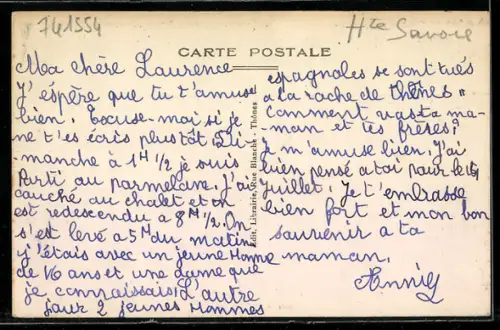 741554
Hte Savoie
CARTE POSTALE
Ma chère Laurence
J'éspère que tu t'amuse
bien. Excuse-moi si je
ne t'es écris plustôt. Di
manche à 1H 1/2 je suis
Parti au parmelan. J'ai
couché au chalet et on
est redescendu a 8H 1/2. On
s'est levé a 5H du matin
j'étais avec un jeune Homme
de 16 ans et une dame que
je connaissais. L'autre
jour 2 jeunes Hommes
Edit. Librairie, Rue Blanche - Thônes
espagnoles se sont tués
a la roche de thônes.
Comment va sta ma-
man et tes frères?
je m'amuse bien. J'ai
bien pensé a toi pour le 14
juillet. Je t'embrasse
bien fort et mon bon
souvenir a ta
maman.
Anny